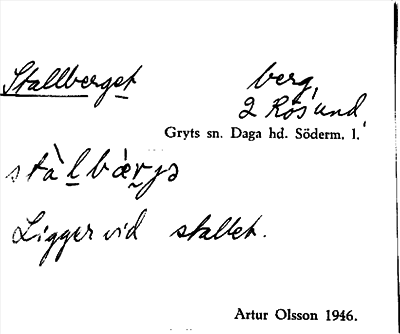 Stallberget berg,
2 Rösund,
Gryts sn. Daga hd. Söderm. l.
stàlbærjə
Ligger vid stallet.
Artur Olsson 1946.